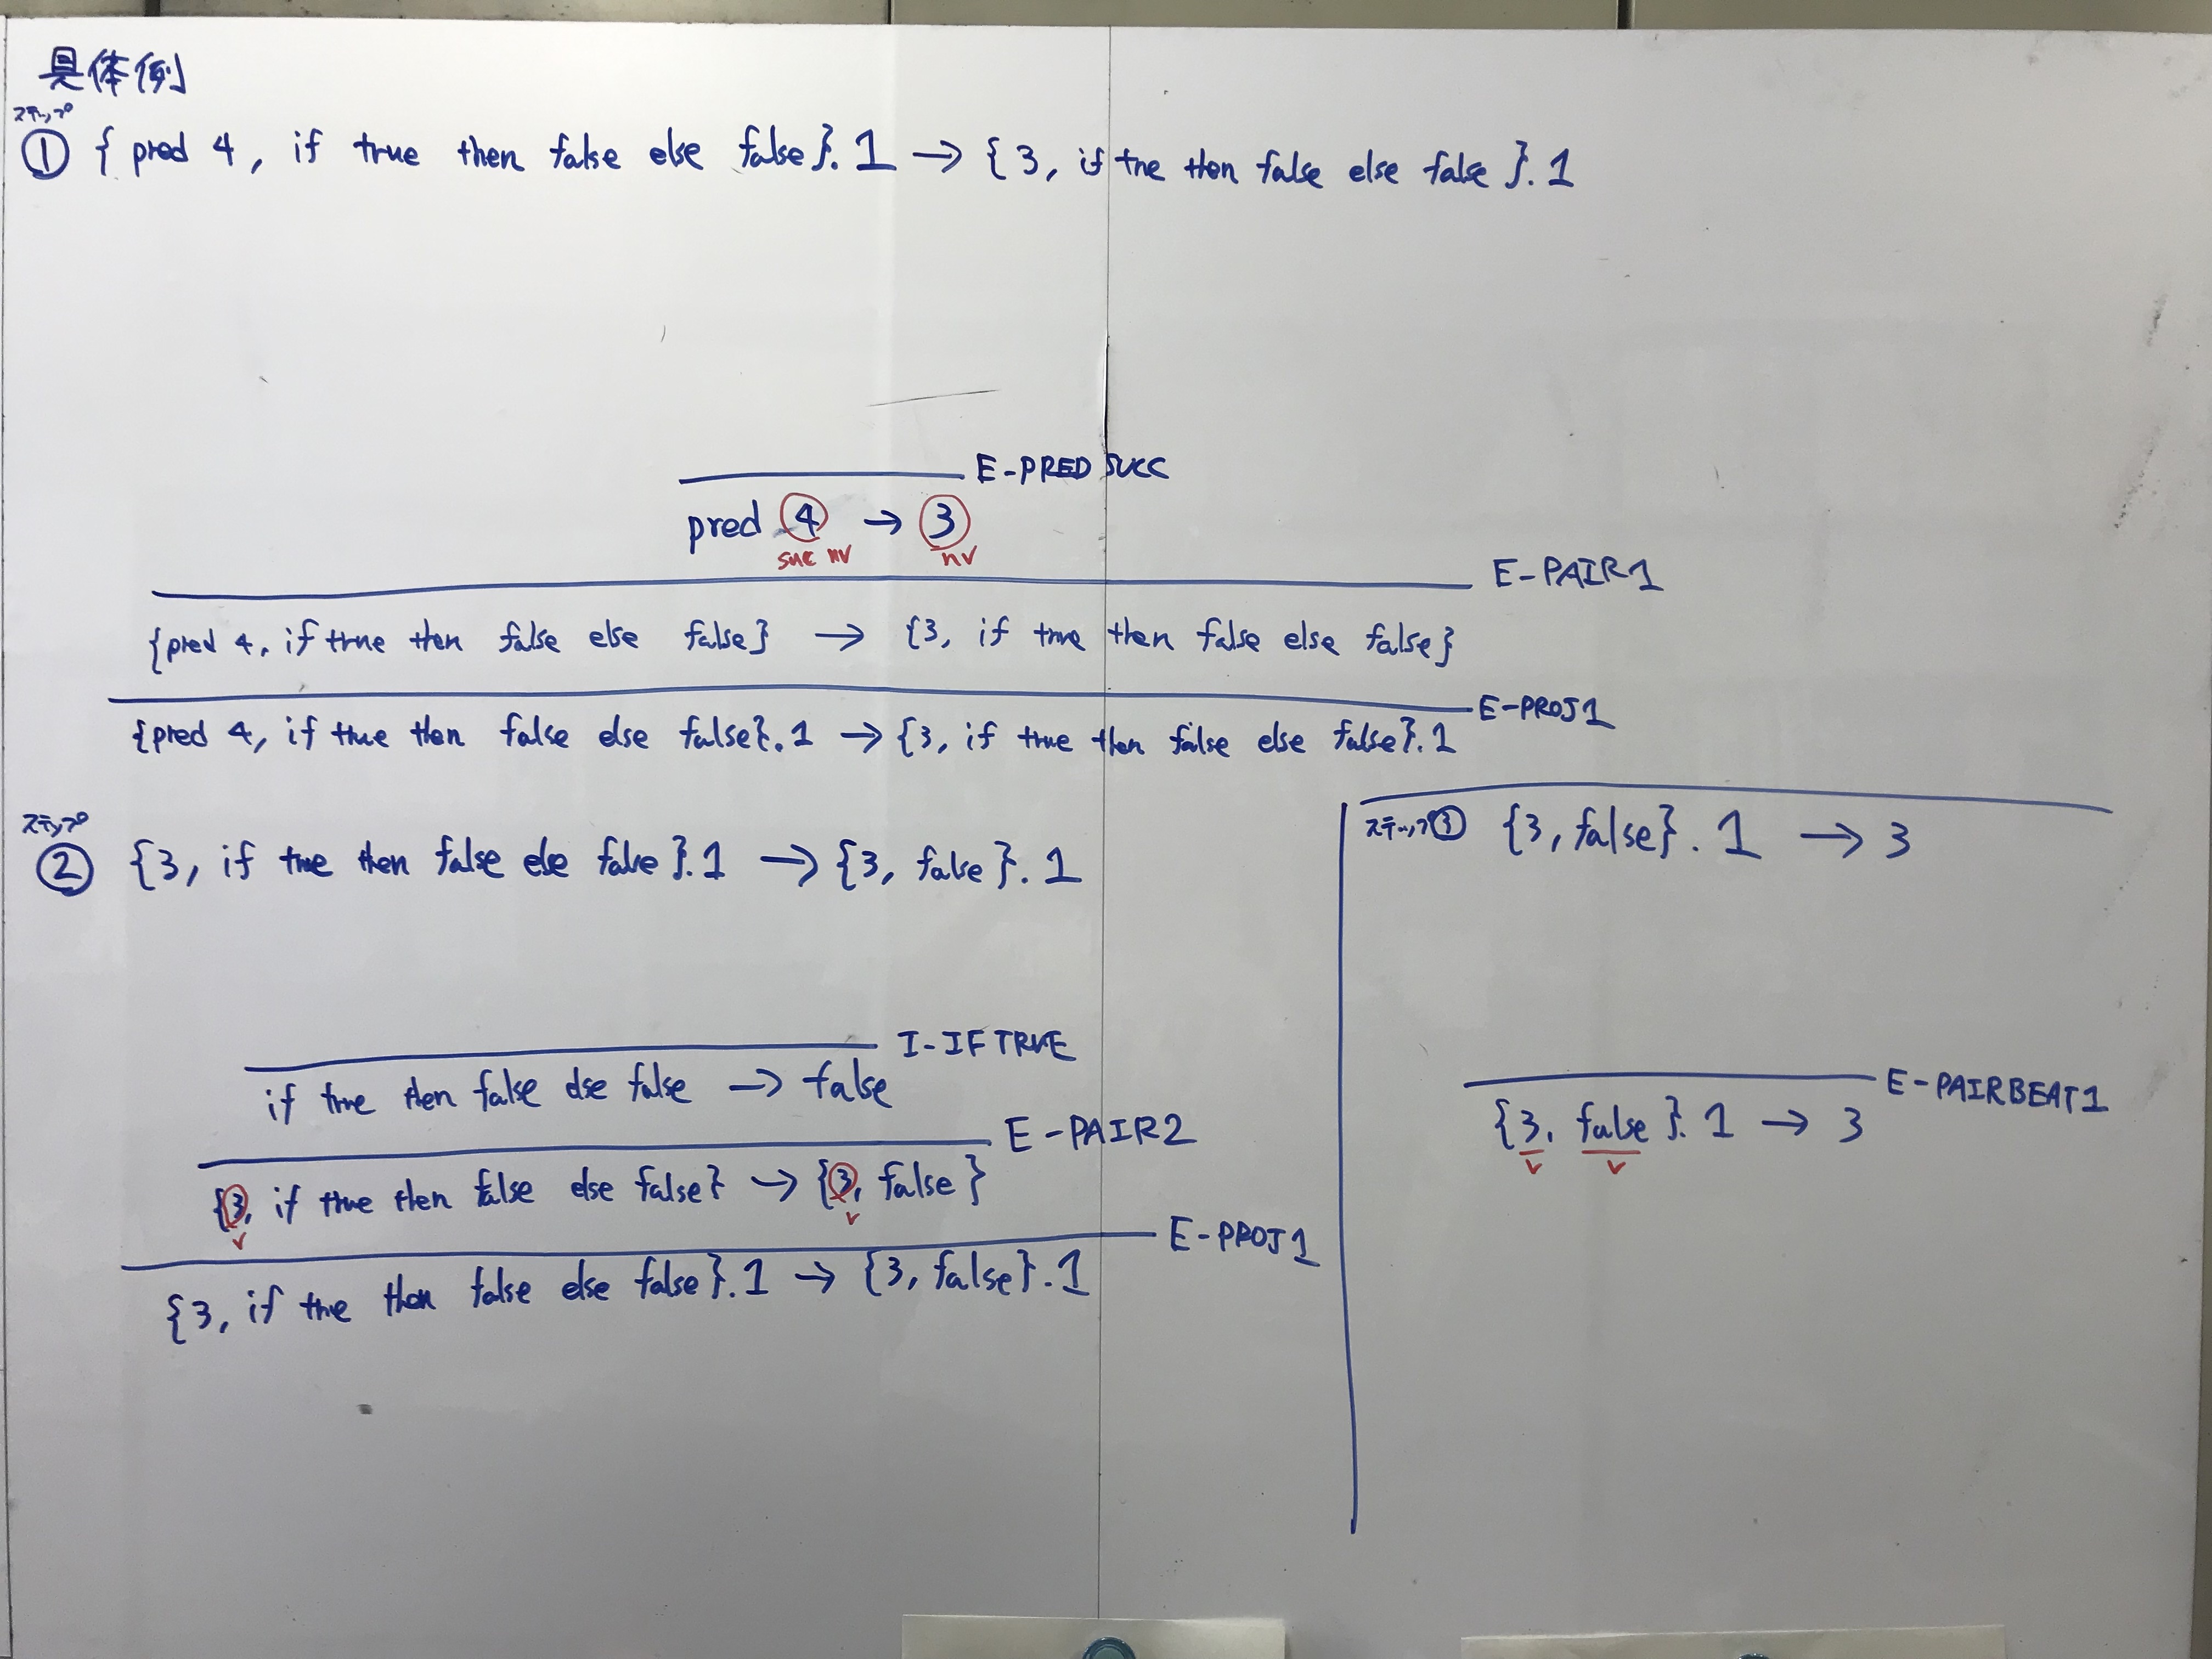 具体例
ステップ
① { pred 4, if true then false else false}.1 → {3, if true then false else false}.1
E-PREDSUCC
pred 4 → 3
suc nv nv
E-PAIR1
{pred 4, if true then false else false} → {3, if true then false else false}
E-PROJ1
{pred 4, if true then false else false}.1 → {3, if true then false else false}.1
ステップ
② {3, if true then false else false}.1 → {3, false}.1
I-IFTRUE
if true then false else false → false
E-PAIR2
{3, if true then false else false} → {3, false}
v v
E-PROJ1
{3, if true then false else false}.1 → {3, false}.1
ステップ③ {3, false}.1 → 3
E-PAIRBEAT1
{3, false}.1 → 3
v v